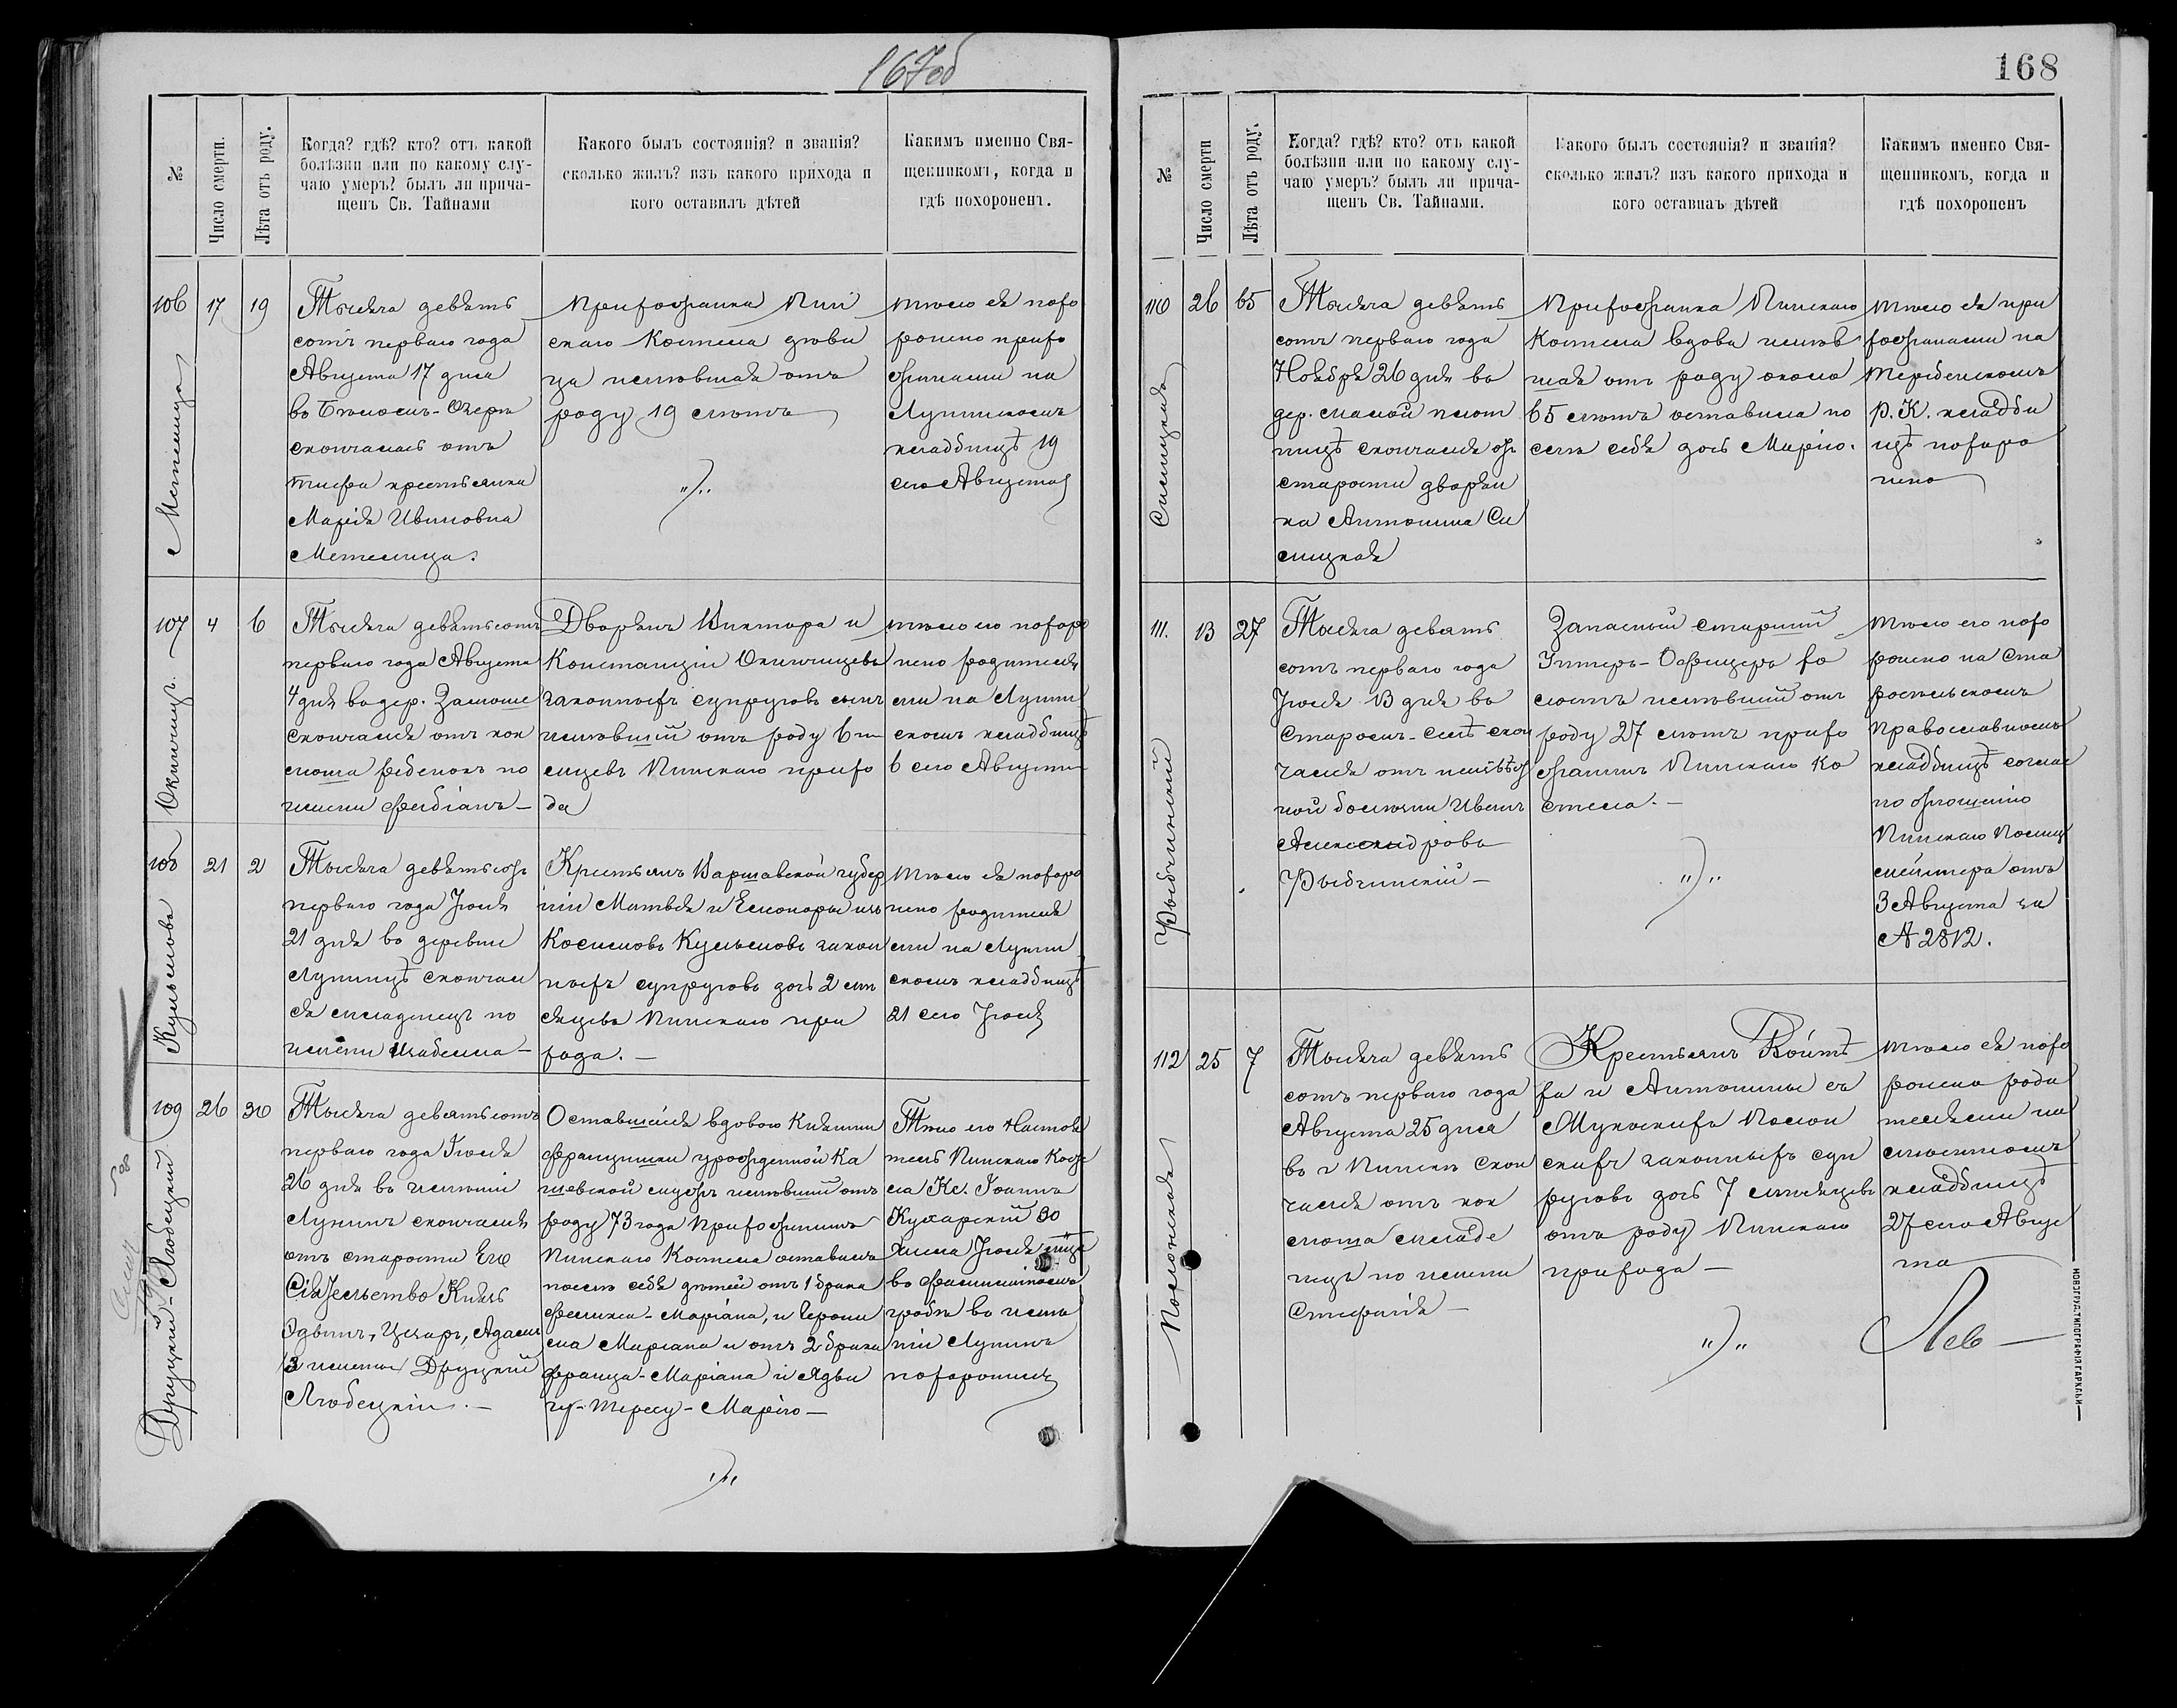 167об
№
Число смерти.
Лѣта отъ роду.
Когда? гдѣ? кто? отъ какой
болѣзни или по какому слу-
чаю умеръ? былъ ли прича-
щенъ Св. Тайнами
Какого былъ состоянія? и званія?
сколько жилъ? изъ какого прихода и
кого оставилъ дѣтей
Какимъ именно Свя-
щенникомъ, когда и
гдѣ похороненъ.
106
17
19
Метелица
Тысяча девять
сотъ перваго года
Августа 17 дня
во Бѣломъ-Озерѣ
скончалась отъ
тифа крестьянка
Марія Ивановна
Метелица.
Прихожанка Пин
скаго Костела дѣви
ца имѣвшая отъ
роду 19 лѣтъ
тѣло ея похо
ронено прихо
жанами на
Лунинскомъ
кладбищѣ 19
сего Августа
107
4
6
Окинчицъ
Тысяча девятьсотъ
перваго года Августа
4 дня во дер. Замоше
скончался отъ кок
люша ребенокъ по
имени Фабіанъ —
Дворянъ Виктора и
Констанціи Окинчицевъ
законныхъ супруговъ сынъ
имѣвшій отъ роду 6 мѣ
сяцевъ Пинскаго прихо
да
тѣло его похоро
нено родителя
ми на Лунин
скомъ кладбищѣ
6 сего Августа
108
21
2
Кузьмова
Тысяча девятьсотъ
перваго года Іюля
21 дня во деревни
Лунинѣ скончал
ся младенецъ по
имени Изабелла —
Крестьянъ Варшавской губер
ніи Матвѣя и Елеоноры изъ
Косиновъ Кузьмовъ закон
ныхъ супруговъ дочь 2 мѣ
сяцевъ Пинскаго при
хода. —
тѣло ея похоро
нено родителя
ми на Лунин
скомъ кладбищѣ
21 сего Іюля
109
26
30
Друцкій-Любецкій
Тысяча девятьсотъ
перваго года Іюля
26 дня во имѣніи
Лунинъ скончался
отъ старости Его
Сіятельство Князь
Эдвинъ, Цезарь, Адамъ
3 имены Друцкій
Любецкій. —
Оставшійся вдовою Княгини
Францишки урожденной Ка
шевской мужъ имѣвшій отъ
роду 73 года Прихожанинъ
Пинскаго Костела оставилъ
послѣ себя дѣтей отъ 1 брака
Феликса-Маріана, и Іерони
ма Маріана и отъ 2 брака
Франца-Маріана и Ядви
гу-Терезу-Марію —
Тѣло его Настоя
тель Пинскаго Косте
ла Кс. Іоаннъ
Кухарскій 30
числа Іюля м-ца
во фамилійномъ
гробѣ во имѣ
ніи Лунинъ
похоронилъ
168
№
Число смерти
Лѣта отъ роду.
Когда? гдѣ? кто? отъ какой
болѣзни или по какому слу-
чаю умеръ? былъ ли прича-
щенъ Св. Тайнами.
Какого былъ состоянія? и званія?
сколько жилъ? изъ какого прихода и
кого оставилъ дѣтей
Какимъ именно Свя-
щенникомъ, когда и
гдѣ похороненъ
110
26
65
Тысяча девять
сотъ перваго года
Ноября 26 дня во
дер. малой плот
ницѣ скончался отъ
старости дворян
ка Антонина Си
лицкая
Прихожанка Пинскаго
Костела вдова имѣв
шая отъ роду около
65 лѣтъ оставила по
слѣ себя дочь Марію.
тѣло ея при
хожанами на
Теребенскомъ
Р. К. кладби
щѣ похоро
нено
111.
13
27
Рыбчинскій
Тысяча девять
сотъ перваго года
Іюля 13 дня во
Старомъ-селѣ скон
чался отъ неизвѣст
ной болѣзни Иванъ
Александрова
Рыбчинскій —
Запасный старшій
Унтеръ-Офицеръ хо
лостъ имѣвшій отъ
роду 27 лѣтъ прихо
жанинъ Пинскаго Ко
стела. —
тѣло его похо
ронено на Ста
росельскомъ
Православномъ
кладбищѣ соглас
но отношенію
Пинскаго Полиц
мейстера отъ
3 Августа за
№ 2812.
112
25
7
Тысяча девять
сотъ перваго года
Августа 25 дня
во г Пинскѣ скон
чался отъ кок
люша младе
нецъ по имени
Стефанія —
Крестьянъ Войтѣ
ха и Антонины съ
законныхъ суп
руговъ дочь 7 мѣсяцевъ
отъ роду Пинскаго
прихода —
тѣло ея похо
ронено роди
телями на
мѣстномъ
кладбищѣ
27 сего Авгус
та
НОВОГРУД. ТИПОГРАФІЯ ГАРКАВИ